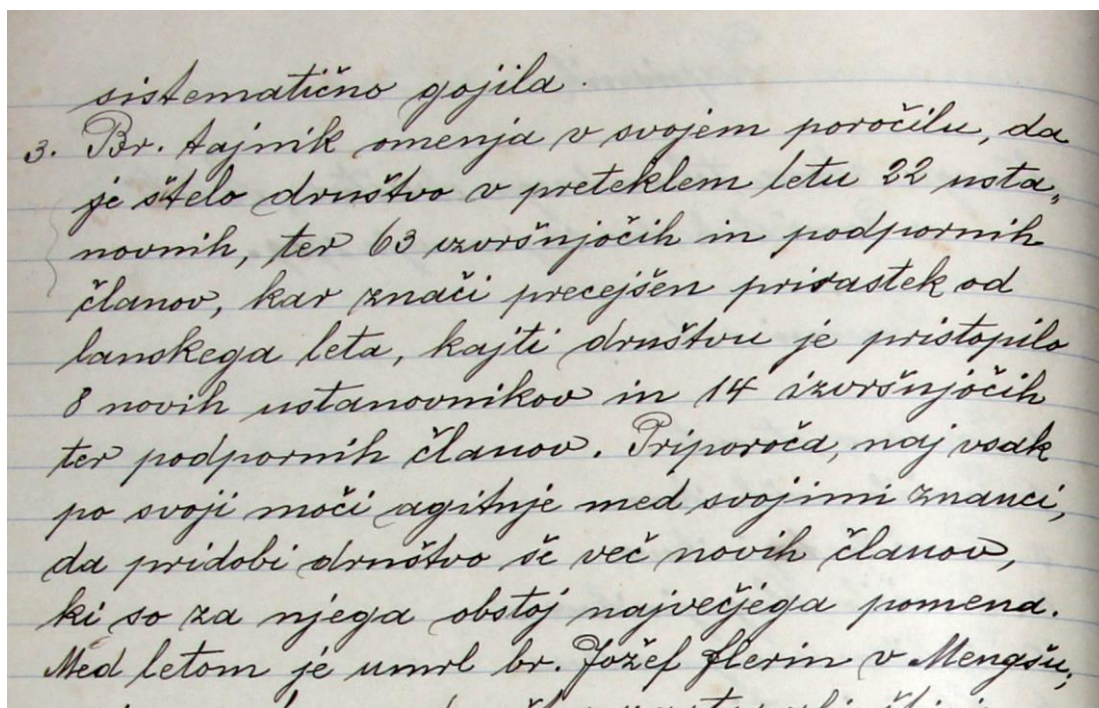 sistematično gojila.
3. Br. tajnik omenja v svojem poročilu, da
je štelo društvo v preteklem letu 22 usta„
novnih, ter 63 izvršujočih in podpornih
članov, kar znači precejšen prirastek od
lanskega leta, kajti društvu je pristopilo
8 novih ustanovnikov in 14 izvršujočih
ter podpornih članov. Priporoča, naj vsak
po svoji moči agituje med svojimi znanci,
da pridobi društvo še več novih članov,
ki so za njega obstoj največjega pomena.
Med letom je umrl br. Jožef Flerin v Mengšu,